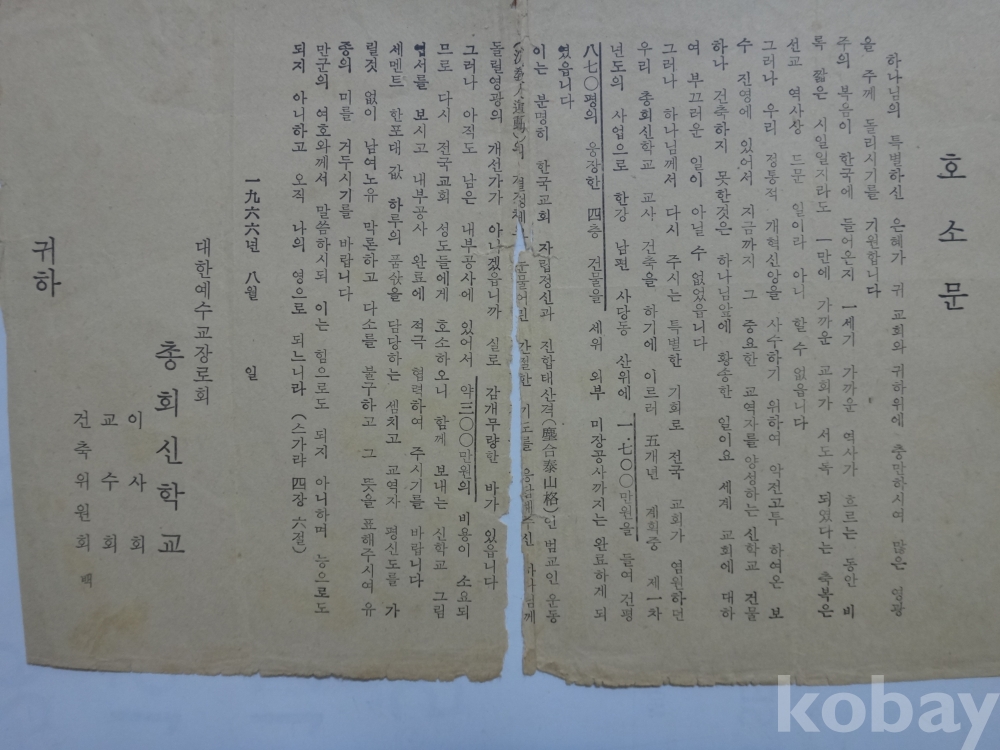 호소문
하나님의 특별하신 은혜가 귀 교회와 귀하위에 충만하시여 많은 영광
을 주께 돌리시기를 기원합니다
주의 복음이 한국에 들어온지 一세기 가까운 역사가 흐르는 동안 비
록 짧은 시일일지라도 一만에 가까운 교회가 서도록 되였다는 축복은
선교 역사상 드문 일이라 아니 할 수 없읍니다
그러나 우리 정통적 개혁신앙을 사수하기 위하여 악전고투 하여온 보
수 진영에 있어서 지금까지 그 중요한 교역자를 양성하는 신학교 건물
하나 건축하지 못한것은 하나님앞에 황송한 일이요 세계 교회에 대하
여 부끄러운 일이 아닐 수 없었읍니다
그러나 하나님께서 다시 주시는 특별한 기회로 전국 교회가 염원하던
우리 총회신학교 교사 건축을 하기에 이르러 五개년 계획중 제一차
년도의 사업으로 한강 남편 사당동 산위에 一·七○○만원을 들여 건평
八七○평의 웅장한 四층 건물을 세워 외부 미장공사까지는 완료하게 되
였읍니다
이는 분명히 한국교회 자립정신과 진합태산격(塵合泰山格)인 범교인 운동
의 결정체요 눈물어린 간절한 기도를 응답해주신 하나님께
돌릴영광의 개선가가 아니겠읍니까 실로 감개무량한 바가 있읍니다
그러나 아직도 남은 내부공사에 있어서 약三○○만원의 비용이 소요되
므로 다시 전국교회 성도들에게 호소하오니 함께 보내는 신학교 그림
엽서를 보시고 내부공사 완료에 적극 협력하여 주시기를 바랍니다
세멘트 한포대 값 하루의 품삯을 담당하는 셈치고 교역자 평신도를 가
릴것 없이 남여노유 막론하고 다소를 불구하고 그 뜻을 표해주시여 유
종의 미를 거두시기를 바랍니다
만군의 여호와께서 말씀하시되 이는 힘으로도 되지 아니하며 능으로도
되지 아니하고 오직 나의 영으로 되느니라 (스가랴 四장 六절)
一九六六년 八월 일
대한예수교장로회
총회신학교
이사회
교수회
건축위원회 백
귀하
kobay